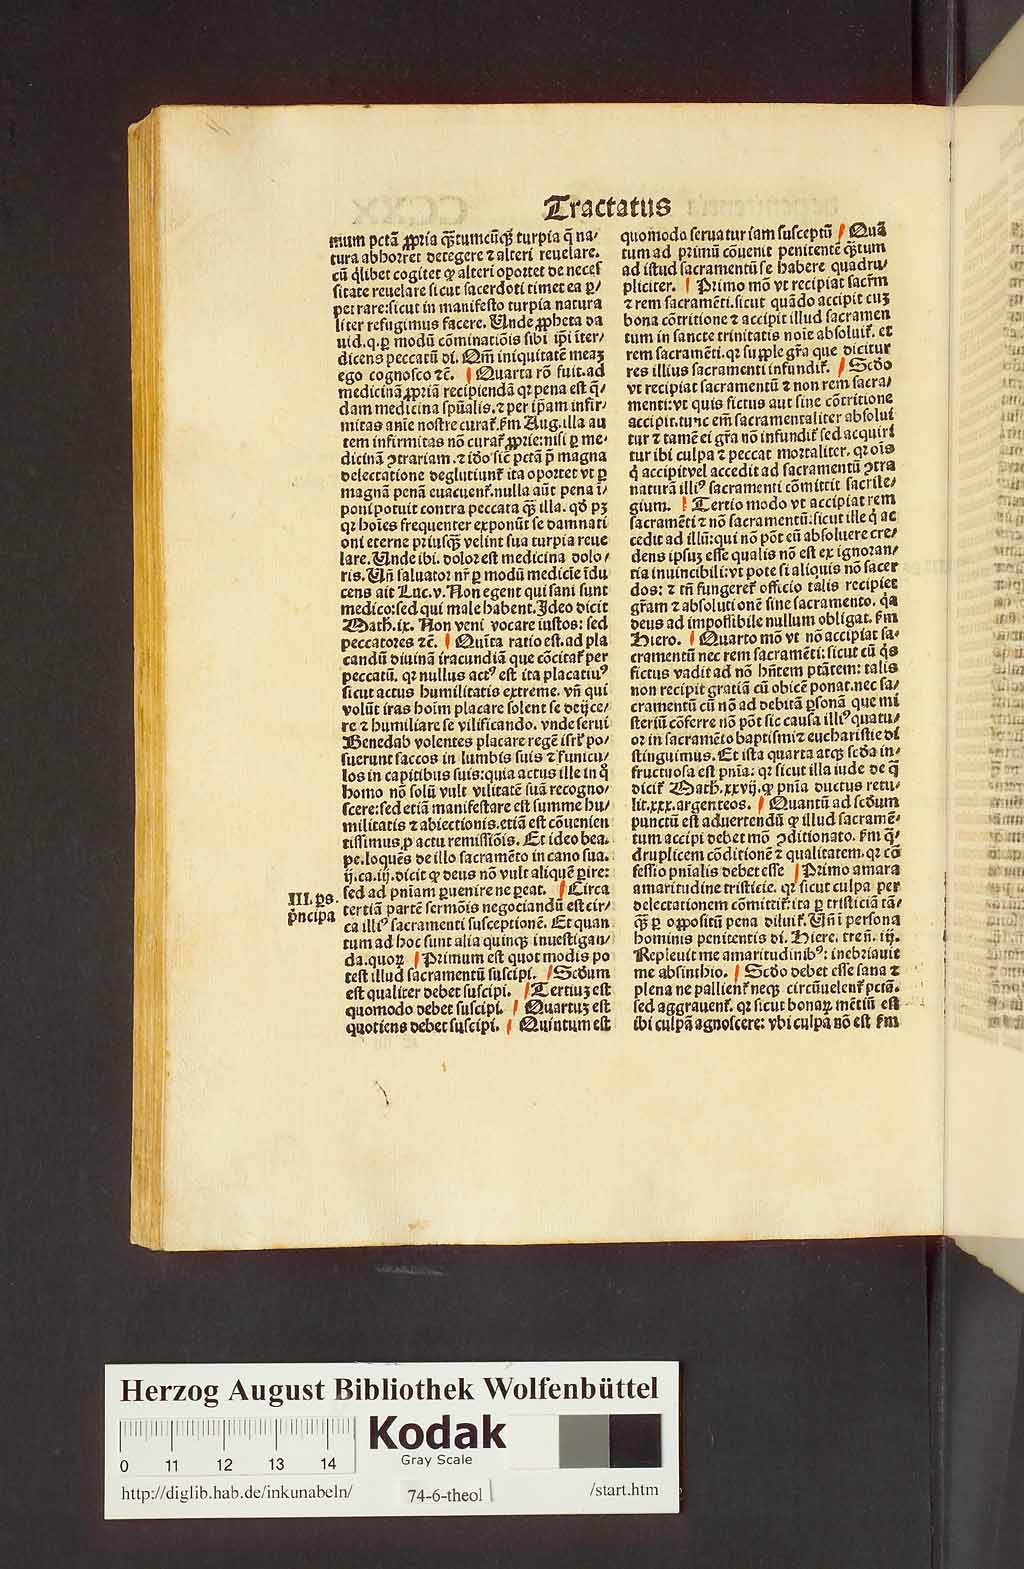 Tractatus
mum pctā ꝓpria qꝫtumcūqꝫ turpia q̄ na⸗
tura abhorret detegere ⁊ alteri reuelare.
cū q̇libet cogitet ꝙ alteri oportet de neces
sitate reuelare sicut sacerdoti timet ea ꝑ⸗
petrare: sicut in manifesto turpia natura
liter refugimus facere. Unde ꝓpheta da
uid. q. ꝑ modū cōminatiōis sibi ip̄i iter⸗
dicens peccatū di. Qm̄ iniquitatē meaꝫ
ego cognosco ⁊c. Quarta rō fuit. ad
medicinā ꝓpriā recipiendā qꝛ pena est q̄⸗
dam medicina spūalis. ⁊ per ip̄am infir⸗
mitas anīe nostre curat᷑. ẜm Aug. illa au
tem infirmitas nō curat᷑ ꝓprie: nisi ꝑ me⸗
dicinā ꝯtrariam. ⁊ iō sic̄ pctā p̄ magna
delectatione deglutiunt᷑ ita oportet vt ꝑ
magnā penā euacuent᷑. nulla aūt pena ī⸗
poni potuit contra peccata qꝫ illa. qd̄ pꝫ
qꝛ hoīes frequenter exponūt se damnati
oni eterne priusqꝫ velint sua turpia reue
lare. Unde ibi. dolor est medicina dolo⸗
ris. Un̄ saluator nr̄ ꝑ modū medicīe īdu
cens ait Luc. v. Non egent qui sani sunt
medico: sed qui male habent. Ideo dicit
Math. ix. Non veni vocare iustos: sed
peccatores ⁊c. Quīta ratio est. ad pla
candū diuinā iracundiā que cōcitat᷑ per
peccatū. qꝛ nullus actꝰ est ita placatiuꝰ
sicut actus humilitatis extreme. vn̄ qui
volūt iras hoīm placare solent se deijce⸗
re ⁊ humiliare se vilificando. vnde serui
Benedab volentes placare regē isrl̄ po⸗
suerunt saccos in lumbis suis ⁊ funicu⸗
los in capitibus suis: quia actus ille in q̊
homo nō solū vult vilitatē suā recogno⸗
scere: sed etiā manifestare est summe hu⸗
militatis ⁊ abiectionis. etiā est cōuenien
tissimus ꝓ actu remissiōis. Et ideo bea.
pe. loquēs de illo sacramēto in cano sua.
ij. ca. iij. dicit ꝙ deus nō vult aliquē ꝑire:
sed ad pniam ꝑuenire ne ꝑeat. Circa
III. ꝑs.
p̄ncipa
tertiā partē sermōis negociandū est cir⸗
ca illiꝰ sacramenti susceptionē. Et quan
tum ad hoc sunt alia quinqꝫ inuestigan⸗
da. quoꝝ Primum est quot modis po
test illud sacramentū suscipi. Scd̄um
est qualiter debet suscipi. Tertiuꝫ est
quomodo debet suscipi. Quartuꝫ est
quotiens debet suscipi. Quintum est
quomodo seruatur iam susceptū Quā
tum ad primū cōuenit penitentē qꝫtum
ad istud sacramentū se habere quadru⸗
pliciter. Primo mō vt recipiat sacr̄m
⁊ rem sacramēti. sicut quādo accipit cuꝫ
bona cōtritione ⁊ accipit illud sacramen
tum in sancte trinitatis noīe absoluit᷑. et
rem sacramēti. qꝛ supple gr̄a que dicitur
res illius sacramenti infundit᷑. Scd̄o
vt recipiat sacramentū ⁊ non rem sacra⸗
menti: vt quis fictus aut sine cōtritione
accipit. tunc em̄ sacramentaliter absolui
tur ⁊ tamē ei gr̄a nō infundit᷑ sed acquiri
tur ibi culpa ⁊ peccat mortaliter. qꝛ oīs
q̇ accipit vel accedit ad sacramentū ꝯtra
naturā illiꝰ sacramenti cōmittit sacrile⸗
gium. Tertio modo vt accipiat rem
sacramēti ⁊ nō sacramentū: sicut ille q̇ ac
cedit ad illū: qui nō pōt eū absoluere cre⸗
dens ipsuꝫ esse qualis nō est ex ignoran⸗
tia inuincibili: vt pote si aliquis nō sacer
dos: ⁊ tn̄ fungeret᷑ officio talis recipiet
gr̄am ⁊ absolutionē sine sacramento. qꝛ
deus ad impossibile nullum obligat. ẜm
Hiero. Quarto mō vt nō accipiat sa⸗
cramentū nec rem sacramēti: sicut cū q̇s
fictus vadit ad nō hn̄tem ptātem: talis
non recipit gratiā cū obicē ponat. nec sa⸗
cramentū cū nō ad debitā ꝑsonā que mi
steriū cōferre nō pōt sic causa illiꝰ quatu⸗
or in sacramēto baptismi ⁊ eucharistie di
stinguimus. Et ista quarta atqꝫ scd̄a in⸗
fructuosa est pnīa: qꝛ sicut illa iude de q̄
dicit᷑ Math. xxvij. ꝙ pnīa ductus retu⸗
lit. xxx. argenteos. Quantū ad scd̄um
punctū est aduertendū ꝙ illud sacramē⸗
tum accipi debet mō ꝯditionato. ẜm q̄⸗
druplicem cōditionē ⁊ qualitatem. qꝛ cō
fessio pnīalis debet esse Primo amara
amaritudine tristicie. qꝛ sicut culpa per
delectationem cōmittit᷑ ita ꝑ tristiciā tā⸗
qꝫ ꝑ oppositū pena diluit᷑. Un̄ ī persona
hominis penitentis di. Hiere. tren̄. iij.
Repleuit me amaritudinibꝰ: inebriauit
me absinthio. Scd̄o debet esse sana ⁊
plena ne pallient᷑ neqꝫ circūuelent᷑ pctā.
sed aggrauent᷑. qꝛ sicut bonaꝝ mētiū est
ibi culpā agnoscere: vbi culpa nō est ẜm
Herzog August Bibliothek Wolfenbüttel
Kodak
Gray Scale
0 11 12 13 14
http://diglib.hab.de/inkunabeln/ 74-6-theol /start.htm